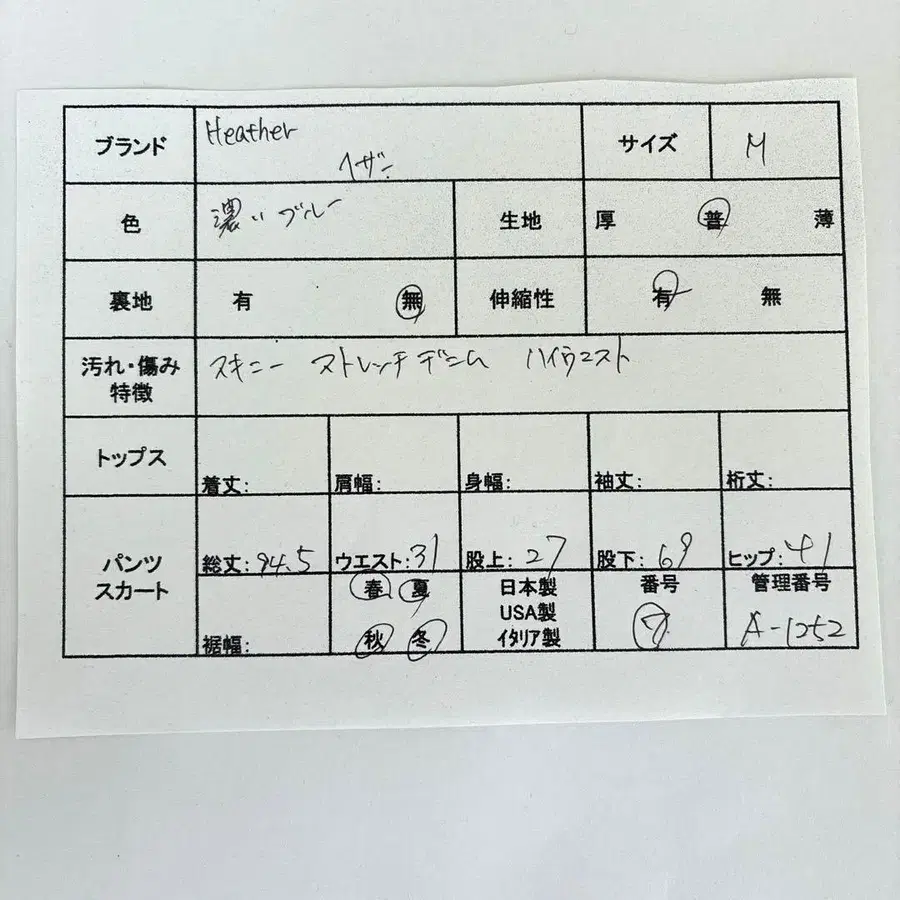 ブランド Heather サイズ M
ヘザー
色 濃い ブルー 生地 厚 普 薄
裏地 有 無 伸縮性 有 無
汚れ・傷み スキニー ストレッチデニム ハイウエスト
特徴
トップス
着丈: 肩幅: 身幅: 袖丈: 裄丈:
パンツ
スカート
総丈:94.5 ウエスト:31 股上:27 股下:69 ヒップ:41
春 夏 日本製 番号 管理番号
USA製
裾幅: 秋 冬 イタリア製 7 A-1252